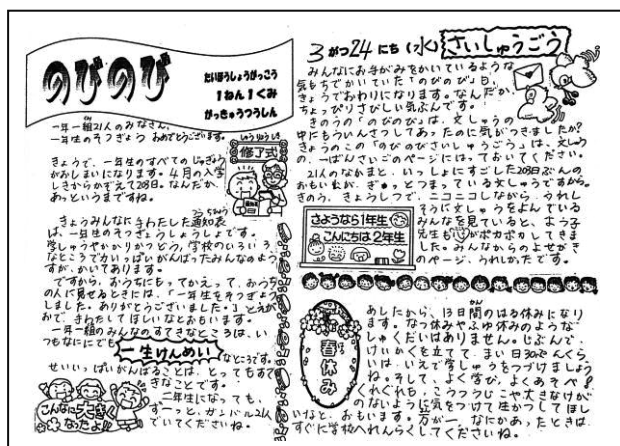 のびのび
たいほうしょうがっこう
1ねん1くみ
がっきゅうつうしん
一年一組21人のみなさん、
一年生のそつぎょう おめでとうございます。
きょうで、一年生のすべてのじゅぎょう
がおしまいになります。4月の入学
しきからかぞえて208日。なんだか、
あっというまですね。
しゅうりょうしき
修了式
きょうみんなにわたした通知表
は、一年生のそつぎょうしょうしょです。
学しゅうやかかりかつどう、学校のいろいろ
なところで力いっぱいがんばったみんなのよう
すが、かいてあります。
ですから、おうちにもってかえって、おうち
の人に見せるときには、「一年生をそつぎょう
しました。ありがとうございました。」とえが
おで、きわたしてほしいなとおもいます。
一年一組のみんなのすてきなところは、い
つもなににでも
一生けんめい
なところです。
せいいっぱいがんばることは、とってもすて
きなことです。
二年生になっても、
ずーっと、ガンバル21人
でいてくださいね。
こんなに大きく
なったよ!!
3がつ24にち(水)
さいしゅうごう
みんなにお手がみをかいているような
気もちでかいていた「のびのび」も、
きょうでおわりになります。なんだか、
ちょっぴりさびしい気ぶんです。
きのうの「のびのび」は、文しゅうの
中にもういんさつしてあったのに気がつきましたか?
きょうのこの「のびのびさいしゅうごう」は、文しゅう
の、一ばんさいごのページにはっておいてください。
21人のなかまと、いっしょにすごした208日ぶんの
おもい出が、ぎゅっとつまっている文しゅうですから。
きのう、きょうしつで、ニコニコしながら、うれし
そうに文しゅうをよんでいる
みんなを見ていると、よう子
先生も
がポカポカしてきま
した。みんなからのよせがき
のページ、うれしかったです。
さようなら1年生
こんにちは2年生
春休み
あしたから、13日間のはる休みになり
ます。なつ休みやふゆ休みのような
しゅくだいはありません。じぶんで、
けいかくを立てて、まい日30ぷんくら
いは、いえで学しゅうをつづけましょう
ね。そして、よく学び、よくあそべ!
くれぐれも、こうつうじこや大きなけが
のないように気をつけて生かつしてほし
いなと、おもいます。万が一、なにかあったときは、
すぐに学校へれんらくしてくださいね。